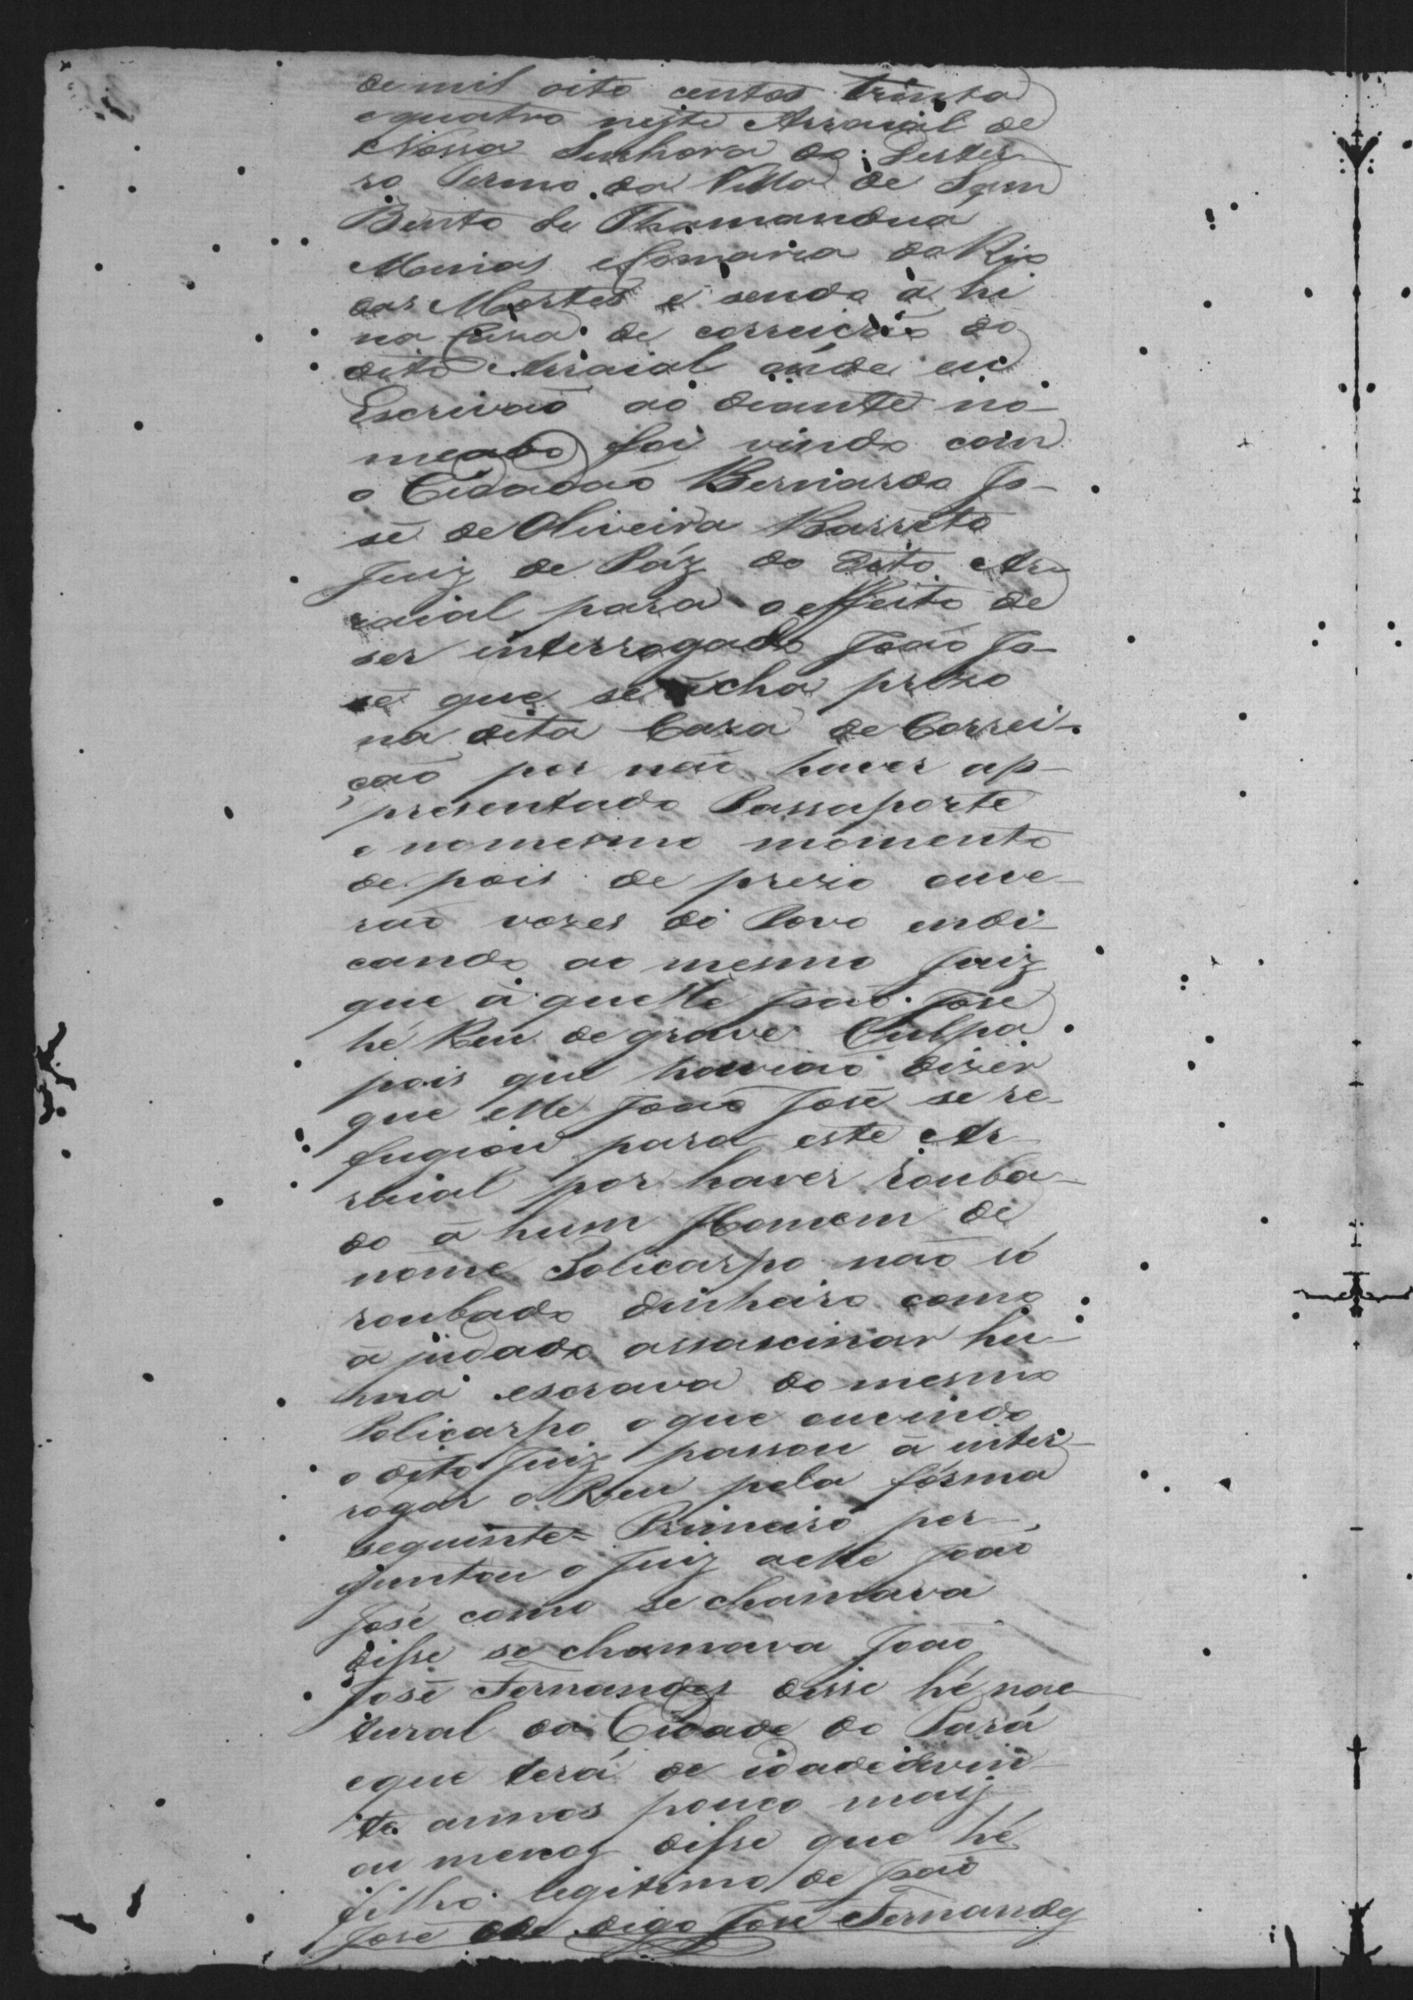 de mil oito centos trinta
e quatro neste Arraial de
Nossa Senhora do Dester-
ro Termo da Villa de Sam
Bento de Thamandua
Minas e Comarca do Rio
das Mortes e sendo á hi
na Caza de correição do
dito Arraial aónde eu
Escrivaõ ao diante no-
meado foi vindo com
o Cidadaõ Bernardo Jo-
sé de Oliveira Barreto
Juiz de Páz do dito Ar-
raial para o effeito de
ser interrogado João Jo-
sé que se acha prezo
na dita Caza de Correi-
çaõ por naõ haver ap-
presentado Passaporte
e no mesmo momento
de pois de prezo ouve-
raõ vozes do Povo indi-
cando ao mesmo Juiz
que á quelle João José
hé Reu de grave Culpa
pois que haviaõ dizer
que elle João José se re-
fugiou para este Ar-
raial por haver rouba-
do a hum Homem de
nome Policarpo naõ só
roubado dinheiro como
a judado assascinar hu-
ma escrava do mesmo
Policarpo o que ouvindo
o dito Juiz passou á inter-
rogar o Reu pela fórma
seguinte= Primeiro per-
juntou o Juiz a elle João
José como se chamava
disse se chamava João
José Fernandes disse hé na-
tural da Cidade do Pará
e que terá de idade vin-
te annos pouco mais
ou menos disse que hé
filho legitimo de João
José digo José Fernandes